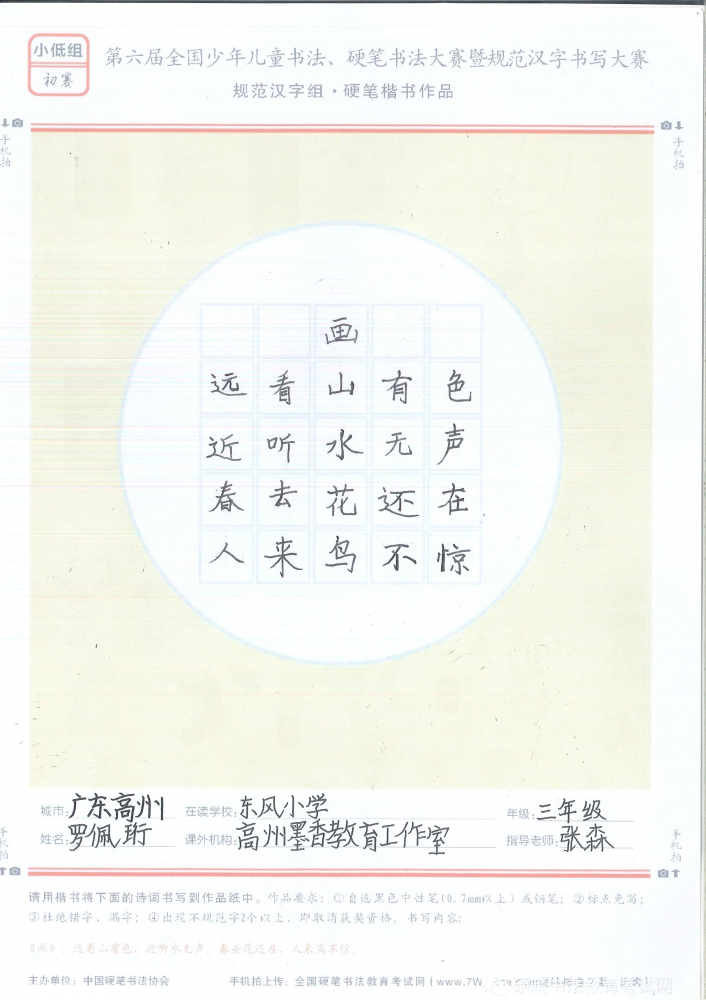 小低组
初赛
第六届全国少年儿童书法、硬笔书法大赛暨规范汉字书写大赛
规范汉字组·硬笔楷书作品
手机拍
手机拍
画
远看山有色
近听水无声
春去花还在
人来鸟不惊
城市:广东高州 在读学校:东风小学 年级:三年级
姓名:罗佩珩 课外机构:高州墨香教育工作室 指导老师:张森
手机拍
手机拍
请用楷书将下面的诗词书写到作品纸中。作品要求:①自选黑色中性笔(0.7mm以上)或钢笔;②标点免写;
③杜绝错字、漏字;④出现不规范字2个以上,即取消获奖资格。书写内容:
《画》:远看山有色,近听水无声。春去花还在,人来鸟不惊。
主办单位:中国硬笔书法协会 手机拍上传:全国硬笔书法教育考试网(www.7W